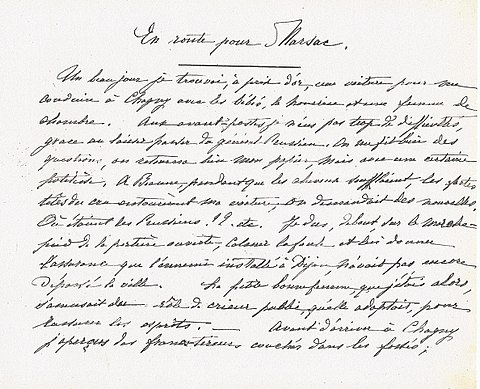 En route pour Marsac.
Un beau jour je trouvai, à prix d'or, une voiture pour me
conduire à Chagny avec les bébés, la nourrice et une femme de
chambre. Aux avant-postes, je n'eus pas trop de difficultés,
grâce au laissez passer du général Prussien. On me fit bien des
questions, on retourna bien mon papier, mais avec une certaine
politesse. A Beaune, pendant que les chevaux soufflaient, les fortes
têtes du cru entourèrent ma voiture, on demandait des nouvelles.
Où étaient les Prussiens ?? etc. Je dus, debout sur le marche
pied de la portière ouverte, calmer la foule et lui donner
l'assurance que l'ennemi installé à Dijon, n'avait pas encore
dépassé la ville. La petite bonne femme que j'étais alors,
s'amusait du rôle de crieur public qu'elle adoptait, pour
rassurer les esprits. — Avant d'arriver à Chagny
j'aperçus des francs-tireurs couchés dans les fossés ;